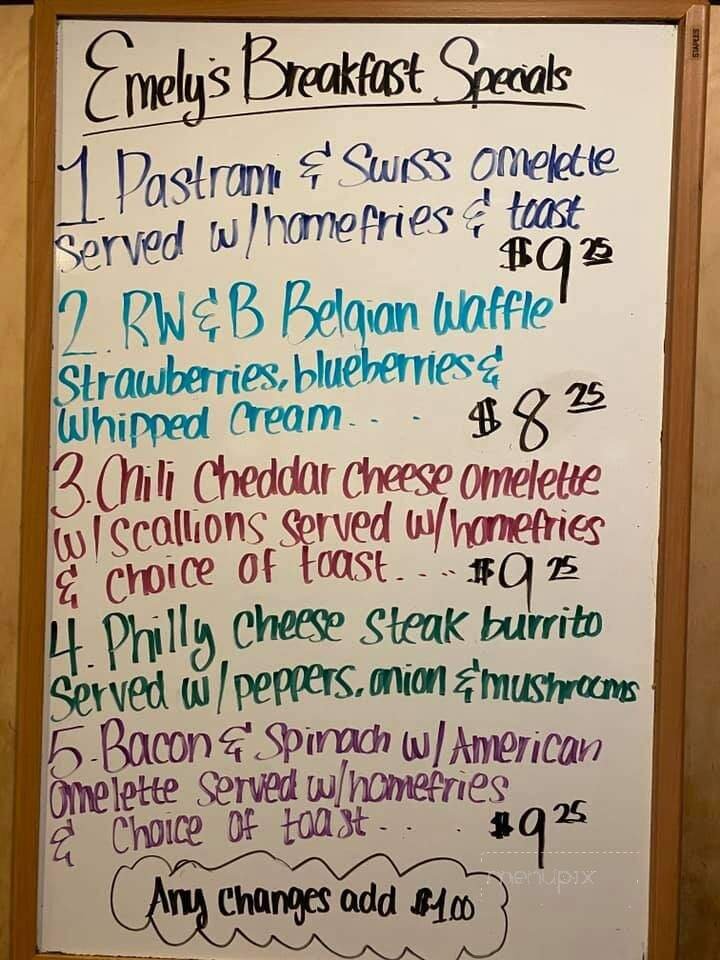 Emely's Breakfast Specials
STAPLES
1. Pastrami & Swiss omelette
Served w/homefries & toast
$9 25
2. RW&B Belgian Waffle
Strawberries, blueberries &
Whipped Cream. . . . $8 25
3. Chili Cheddar Cheese omelette
w/scallions served w/homefries
& choice of toast. . . . $9 25
4. Philly Cheese Steak burrito
Served w/peppers, onion & mushrooms
5. Bacon & Spinach w/American
omelette Served w/homefries
& Choice of toast. . . . $9 25
Any changes add $1.00
menupix